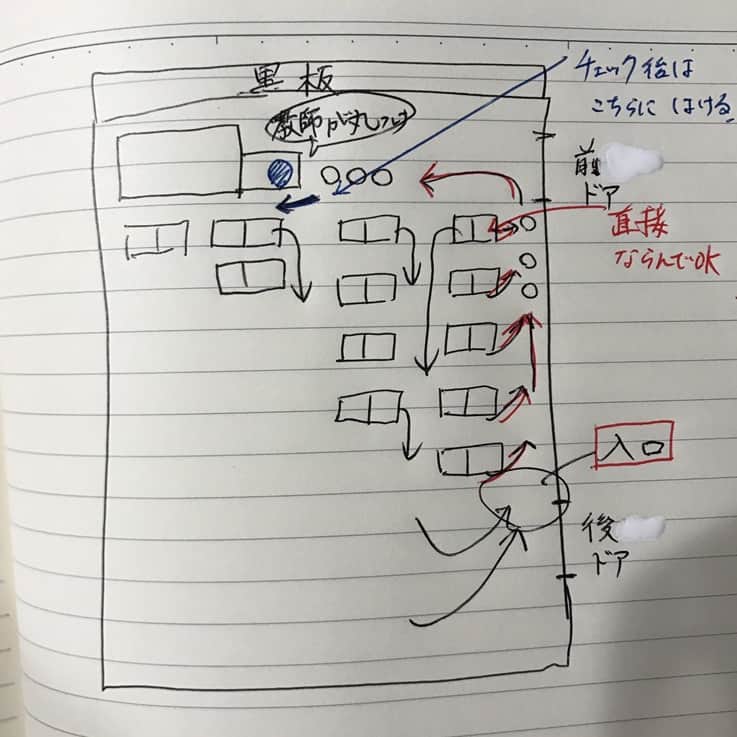 黒板
教師が丸つけ
チェック後は
こちらにはける
前
ドア
直接
ならんでOK
入口
後
ドア